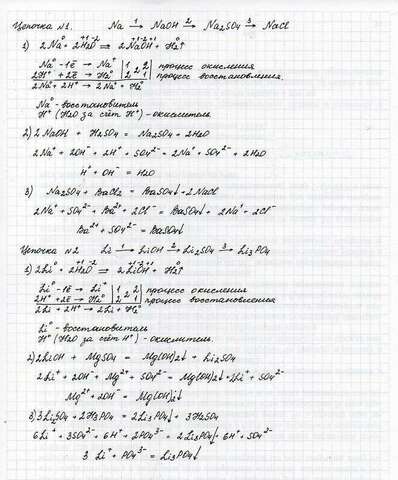 Цепочка №1. Na —1→ NaOH —2→ Na2SO4 —3→ NaCl
1) 2Na⁰ + 2H2⁺¹O⁻² ⇒ 2Na⁺¹O⁻²H⁺¹ + H2⁰↑
Na⁰ - 1ē → Na⁺ | 1 | 2 | 2 | процесс окисления
2H⁺ + 2ē → H2⁰ | 2 | 2 | 1 | процесс восстановления.
2Na⁰ + 2H⁺ → 2Na⁺ + H2⁰
Na⁰ - восстановитель
H⁺ (H2O за счёт H⁺) - окислитель
2) 2NaOH + H2SO4 = Na2SO4 + 2H2O
2Na⁺ + 2OH⁻ + 2H⁺ + SO4²⁻ = 2Na⁺ + SO4²⁻ + 2H2O
H⁺ + OH⁻ = H2O
3) Na2SO4 + BaCl2 = BaSO4↓ + 2NaCl
2Na⁺ + SO4²⁻ + Ba²⁺ + 2Cl⁻ = BaSO4↓ + 2Na⁺ + 2Cl⁻
Ba²⁺ + SO4²⁻ = BaSO4↓
Цепочка №2 Li —1→ LiOH —2→ Li2SO4 —3→ Li3PO4
1) 2Li⁰ + 2H2⁺¹O⁻² ⇒ 2Li⁺¹O⁻²H⁺¹ + H2⁰↑
Li⁰ - 1ē → Li⁺ | 1 | 2 | 2 | процесс окисления
2H⁺ + 2ē → H2⁰ | 2 | 2 | 1 | процесс восстановления
2Li + 2H⁺ → 2Li + H2⁰
Li⁰ - восстановитель
H⁺ (H2O за счёт H⁺) - окислитель.
2) 2LiOH + MgSO4 = Mg(OH)2↓ + Li2SO4
2Li⁺ + 2OH⁻ + Mg²⁺ + SO4²⁻ = Mg(OH)2↓ + 2Li⁺ + SO4²⁻
Mg²⁺ + 2OH⁻ = Mg(OH)2↓
3) 3Li2SO4 + 2H3PO4 = 2Li3PO4↓ + 3H2SO4
6Li⁺ + 3SO4²⁻ + 6H⁺ + 2PO4³⁻ = 2Li3PO4↓ + 6H⁺ + SO4²⁻
3Li⁺ + PO4³⁻ = Li3PO4↓